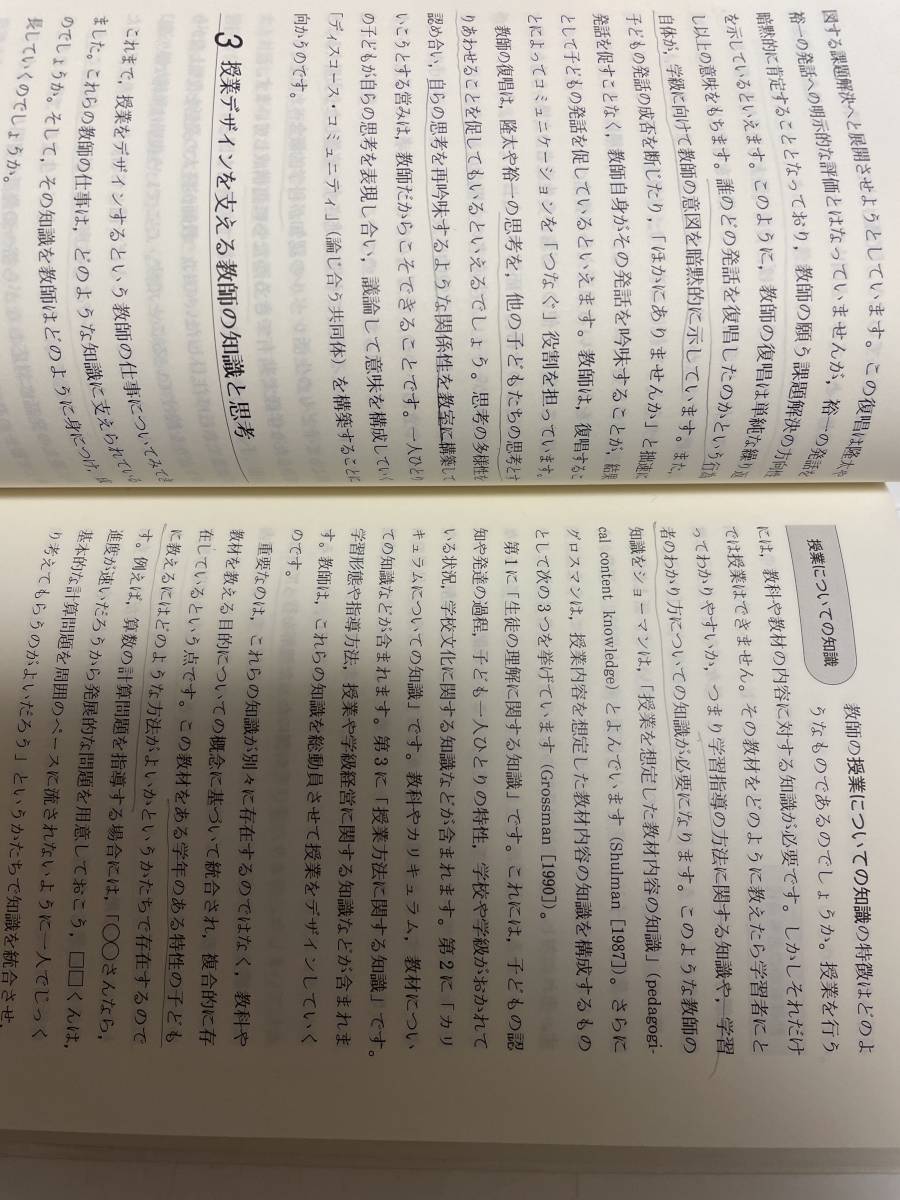 図する課題解決へと展開させようとしています。この復唱は隆太や
裕一の発話への明示的な評価とはなっていませんが，裕一の発話を
暗黙的に肯定することとなっており，教師の願う課題解決の方向性
を示しているといえます。このように，教師の復唱は単純な繰り返
し以上の意味をもちます。誰のどの発話を復唱したのかという行為
自体が，学級に向けて教師の意図を暗黙的に示しています。また，
子どもの発話の成否を断じたり，「ほかにありませんか」と拙速に
発話を促すことなく，教師自身がその発話を吟味することが，結果
として子どもの発話を促しているといえます。教師は，復唱するこ
とによってコミュニケーションを「つなぐ」役割を担っています。
教師の復唱は，隆太や裕一の思考を，他の子どもたちの思考とす
りあわせることを促してもいるといえるでしょう。思考の多様性を
認め合い，自らの思考を再吟味するような関係性を教室に構築して
いこうとする営みは，教師だからこそできることです。一人ひとり
の子どもが自らの思考を表現し合い，議論して意味を構成していく
「ディスコース・コミュニティ」（論じ合う共同体）を構築することに
向かうのです。
3 授業デザインを支える教師の知識と思考
これまで，授業をデザインするという教師の仕事についてみてき
ました。これらの教師の仕事は，どのような知識に支えられている
のでしょうか。そして，その知識を教師はどのように身につけ，成
長していくのでしょうか。
授業についての知識
教師の授業についての知識の特徴はどのよ
うなものであるのでしょうか。授業を行う
には，教科や教材の内容に対する知識が必要です。しかしそれだけ
では授業はできません。その教材をどのように教えたら学習者にと
ってわかりやすいか，つまり学習指導の方法に関する知識や，学習
者のわかり方についての知識が必要になります。このような教師の
知識をショーマンは，「授業を想定した教材内容の知識」（pedagogi-
cal content knowledge）とよんでいます（Shulman［1987］）。さらに
グロスマンは，授業内容を想定した教材内容の知識を構成するもの
として次の3つを挙げています（Grossman［1990］）。
第1に「生徒の理解に関する知識」です。これには，子どもの認
知や発達の過程，子ども一人ひとりの特性，学校や学級がおかれて
いる状況，学校文化に関する知識などが含まれます。第2に「カリ
キュラムについての知識」です。教科やカリキュラム，教材につい
ての知識などが含まれます。第3に「授業方法に関する知識」です。
学習形態や指導方法，授業や学級経営に関する知識などが含まれま
す。教師は，これらの知識を総動員させて授業をデザインしていく
のです。
重要なのは，これらの知識が別々に存在するのではなく，教科や
教材を教える目的についての概念に基づいて統合され，複合的に存
在しているという点です。この教材をある学年のある特性の子ども
に教えるにはどのような方法がよいかというかたちで存在するので
す。例えば，算数の計算問題を指導する場合には，「〇〇さんなら，
進度が速いだろうから発展的な問題を用意しておこう，□□くんは，
基本的な計算問題を周囲のペースに流されないように一人でじっく
り考えてもらうのがよいだろう」というかたちで知識を統合させ，